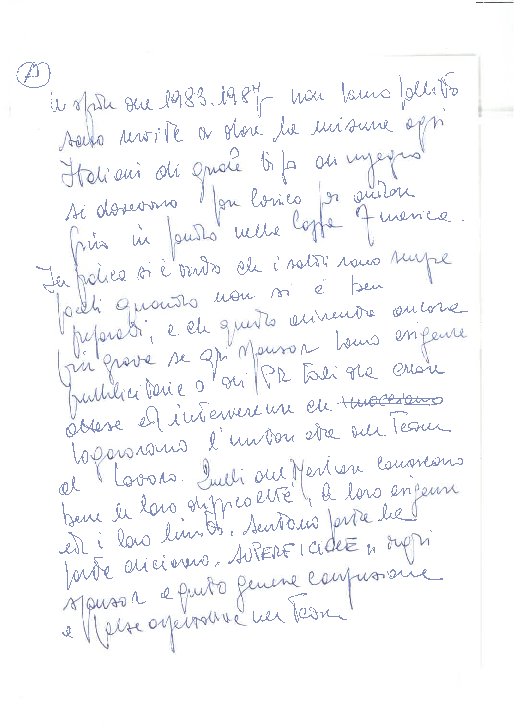 1983. 1987 non hanno fallito
sono a dare la misura agli
Italiani di quale tipo di ingegno
si dovevano far carico per andare
fino in fondo nella Coppa America.
In pratica si è visto che i soldi sono sempre
pochi quando non si è ben
preparati, e che questo diventa ancora
più grave se gli sponsor hanno esigenze
pubblicitarie o di PR tali da creare
attese ed interferenze che
logorano l'umore del Team
al lavoro. Quelli del Mestiere conoscono
bene le loro difficoltà, le loro esigenze
ed i loro limiti.
parte diciamo, SUPERFICIALE negli
sponsor e questo genera confusione
e false aspettative nel Team